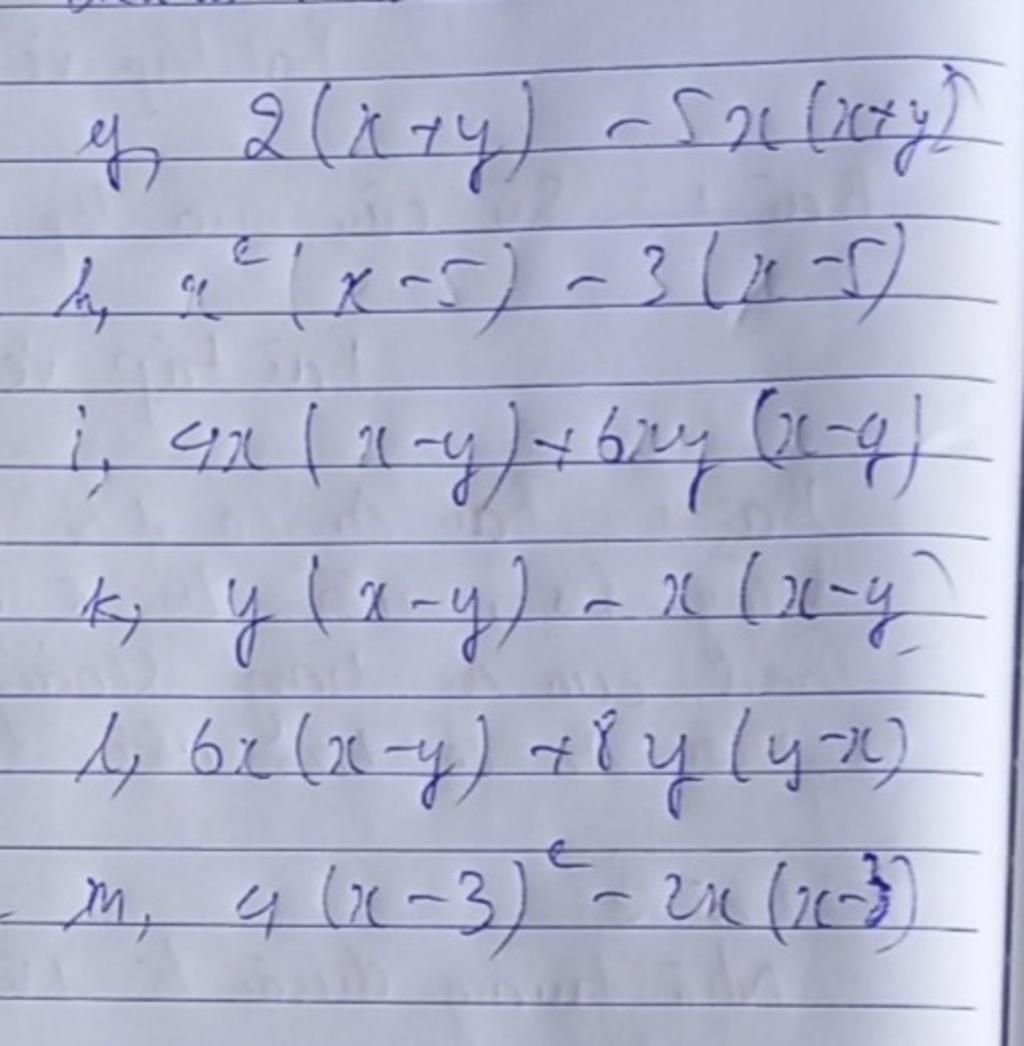 g, 2(x+y) - 5x(x+y)
h, x²(x-5) - 3(x-5)
i, 4x(x-y)+6xy(x-y)
k, y(x-y) - x(x-y)
l, 6x(x-y) +8y(y-x)
m, 4(x-3)² - 2x(x-3)